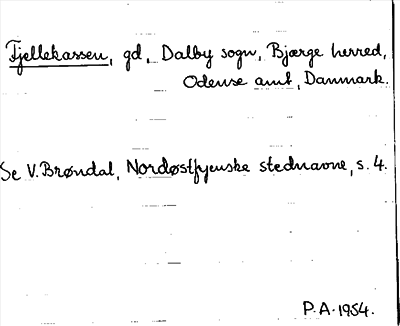 Fjellekassen, gd, Dalby sogn, Bjærge herred,
Odense amt, Danmark.
Se V. Brøndal, Nordøstfyenske stednavne, s. 4.
P.A. 1954.